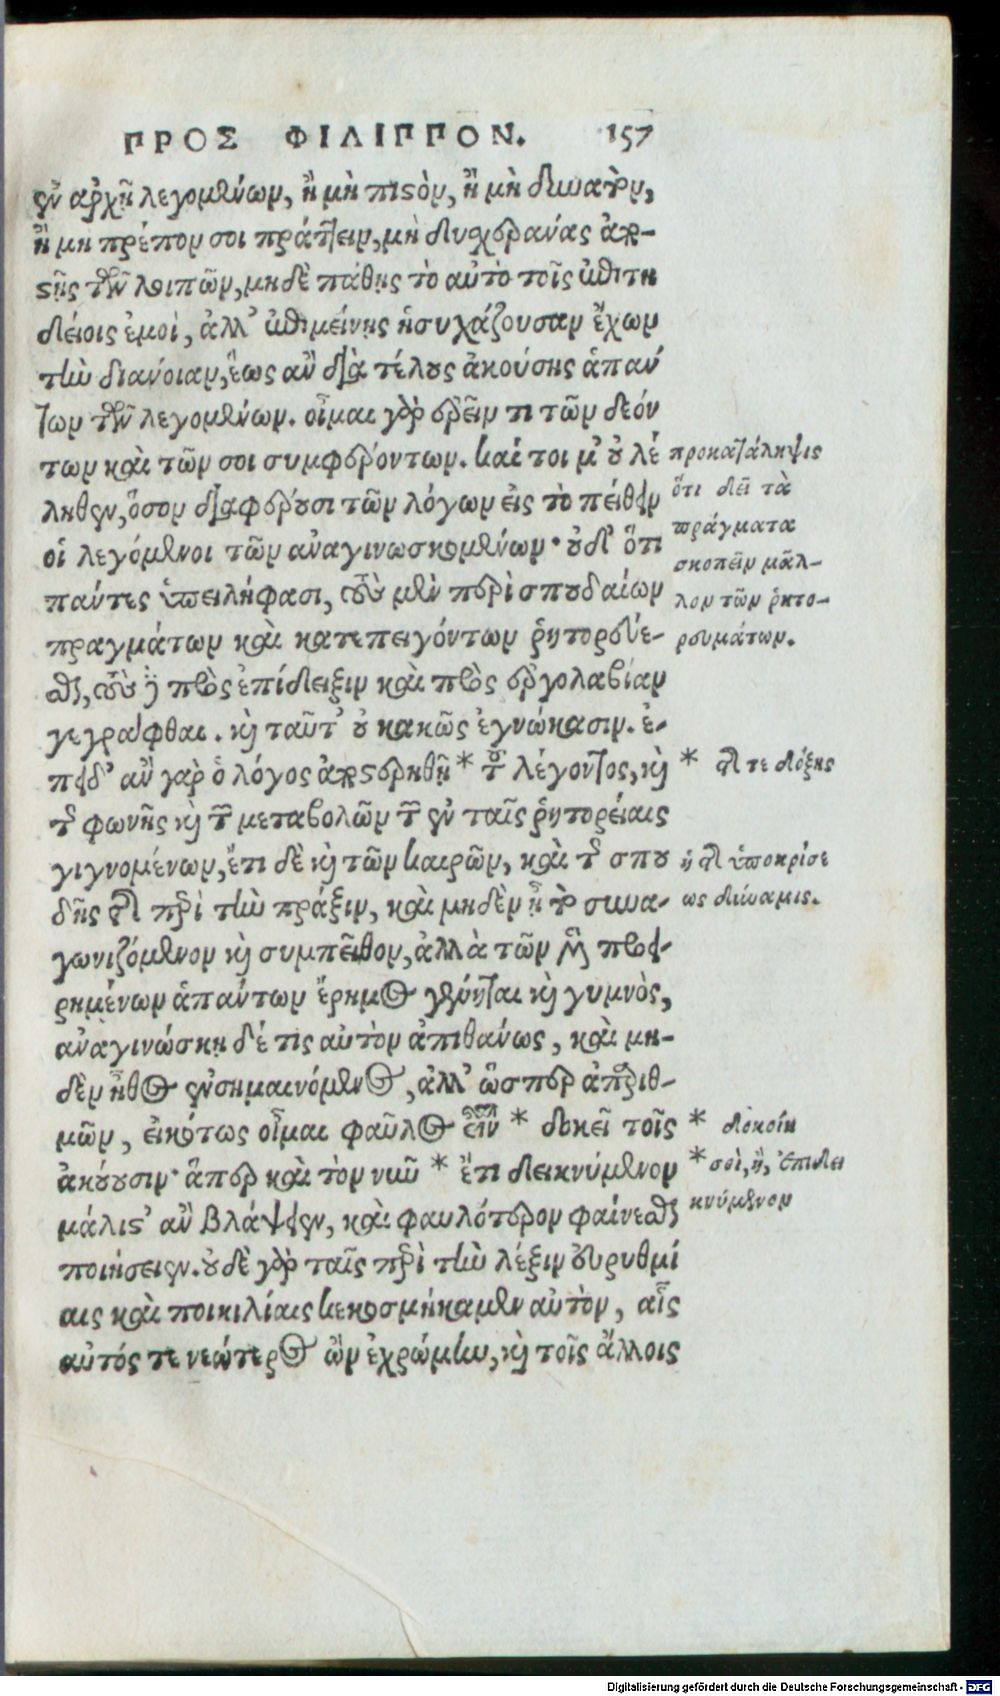 ΠΡΟΣ ΦΙΛΙΠΠΟΝ. 157
ἐν ἀρχῇ λεγομένων, ἢ μὴ πιστὸν, ἢ μὴ δυνατὸν,
ἢ μὴ πρέπον σοι πράττειν, μὴ δυσχεράνας ἀπο-
στῇς τῶν λοιπῶν, μηδὲ πάθῃς τὸ αὐτὸ τοῖς ἐπιτη
δείοις ἐμοὶ, ἀλλ' ἐπιμείνης ἡσυχάζουσαν ἔχων
τὴν διάνοιαν, ἕως ἂν διὰ τέλους ἀκούσῃς ἁπάν
των τῶν λεγομένων. οἶμαι γὰρ ἐρεῖν τι τῶν δεόν
των καὶ τῶν σοι συμφερόντων. Καί τοι μ' οὐ λέ
ληθεν, ὅσον διαφέρουσι τῶν λόγων εἰς τὸ πείθειν
οἱ λεγόμενοι τῶν ἀναγινωσκομένων· οὐδ' ὅτι
πάντες ὑπειλήφασι, τοὺς μὲν περὶ σπουδαίων
πραγμάτων καὶ κατεπειγόντων ῥητορεύε-
σθαι, τοὺς δὲ πρὸς ἐπίδειξιν καὶ πρὸς ἐργολαβίαν
γεγράφθαι. καὶ ταῦτ' οὐ κακῶς ἐγνώκασιν. ἐ-
πειδ' ἂν γὰρ ὁ λόγος ἀποστερηθῇ * τοῦ λέγοντος, καὶ
τῆς φωνῆς καὶ τῶν μεταβολῶν τῶν ἐν ταῖς ῥητορείαις
γιγνομένων, ἔτι δὲ καὶ τῶν καιρῶν, καὶ τῆς σπου
δῆς τῆς περὶ τὴν πράξιν, καὶ μηδὲν ᾖ τὸ συνα-
γωνιζόμενον καὶ συμπεῖθον, ἀλλὰ τῶν μὲν προει-
ρημένων ἁπάντων ἔρημος γένηται καὶ γυμνὸς,
ἀναγινώσκῃ δέ τις αὐτὸν ἀπιθάνως, καὶ μη-
δὲν ἦθος ἐνσημαινόμενος, ἀλλ' ὥσπερ ἀπαριθ-
μῶν, εἰκότως οἶμαι φαῦλος εἶναι * δοκεῖ τοῖς
ἀκούουσιν· ἅπερ καὶ τὸν νῦν * ἔτι δεικνύμενον
μάλιστ' ἂν βλάψειεν, καὶ φαυλότερον φαίνεσθαι
ποιήσειεν. οὐδὲ γὰρ ταῖς περὶ τὴν λέξιν εὐρυθμί
αις καὶ ποικιλίαις κεκοσμήκαμεν αὐτὸν, αἷς
αὐτός τε νεώτερος ὢν ἐχρώμην, καὶ τοῖς ἄλλοις
προκατάληψις
ὅτι δεῖ τὰ
πράγματα
σκοπεῖν μᾶλ-
λον τῶν ῥητο-
ρευμάτων.
* τῆς τε δόξης
ἢ τῆς ὑποκρίσε
ως δύναμις.
* δοκοίη
* σοὶ, ἢ, ἐπιδει
κνύμενον
Digitalisierung gefördert durch die Deutsche Forschungsgemeinschaft - DFG